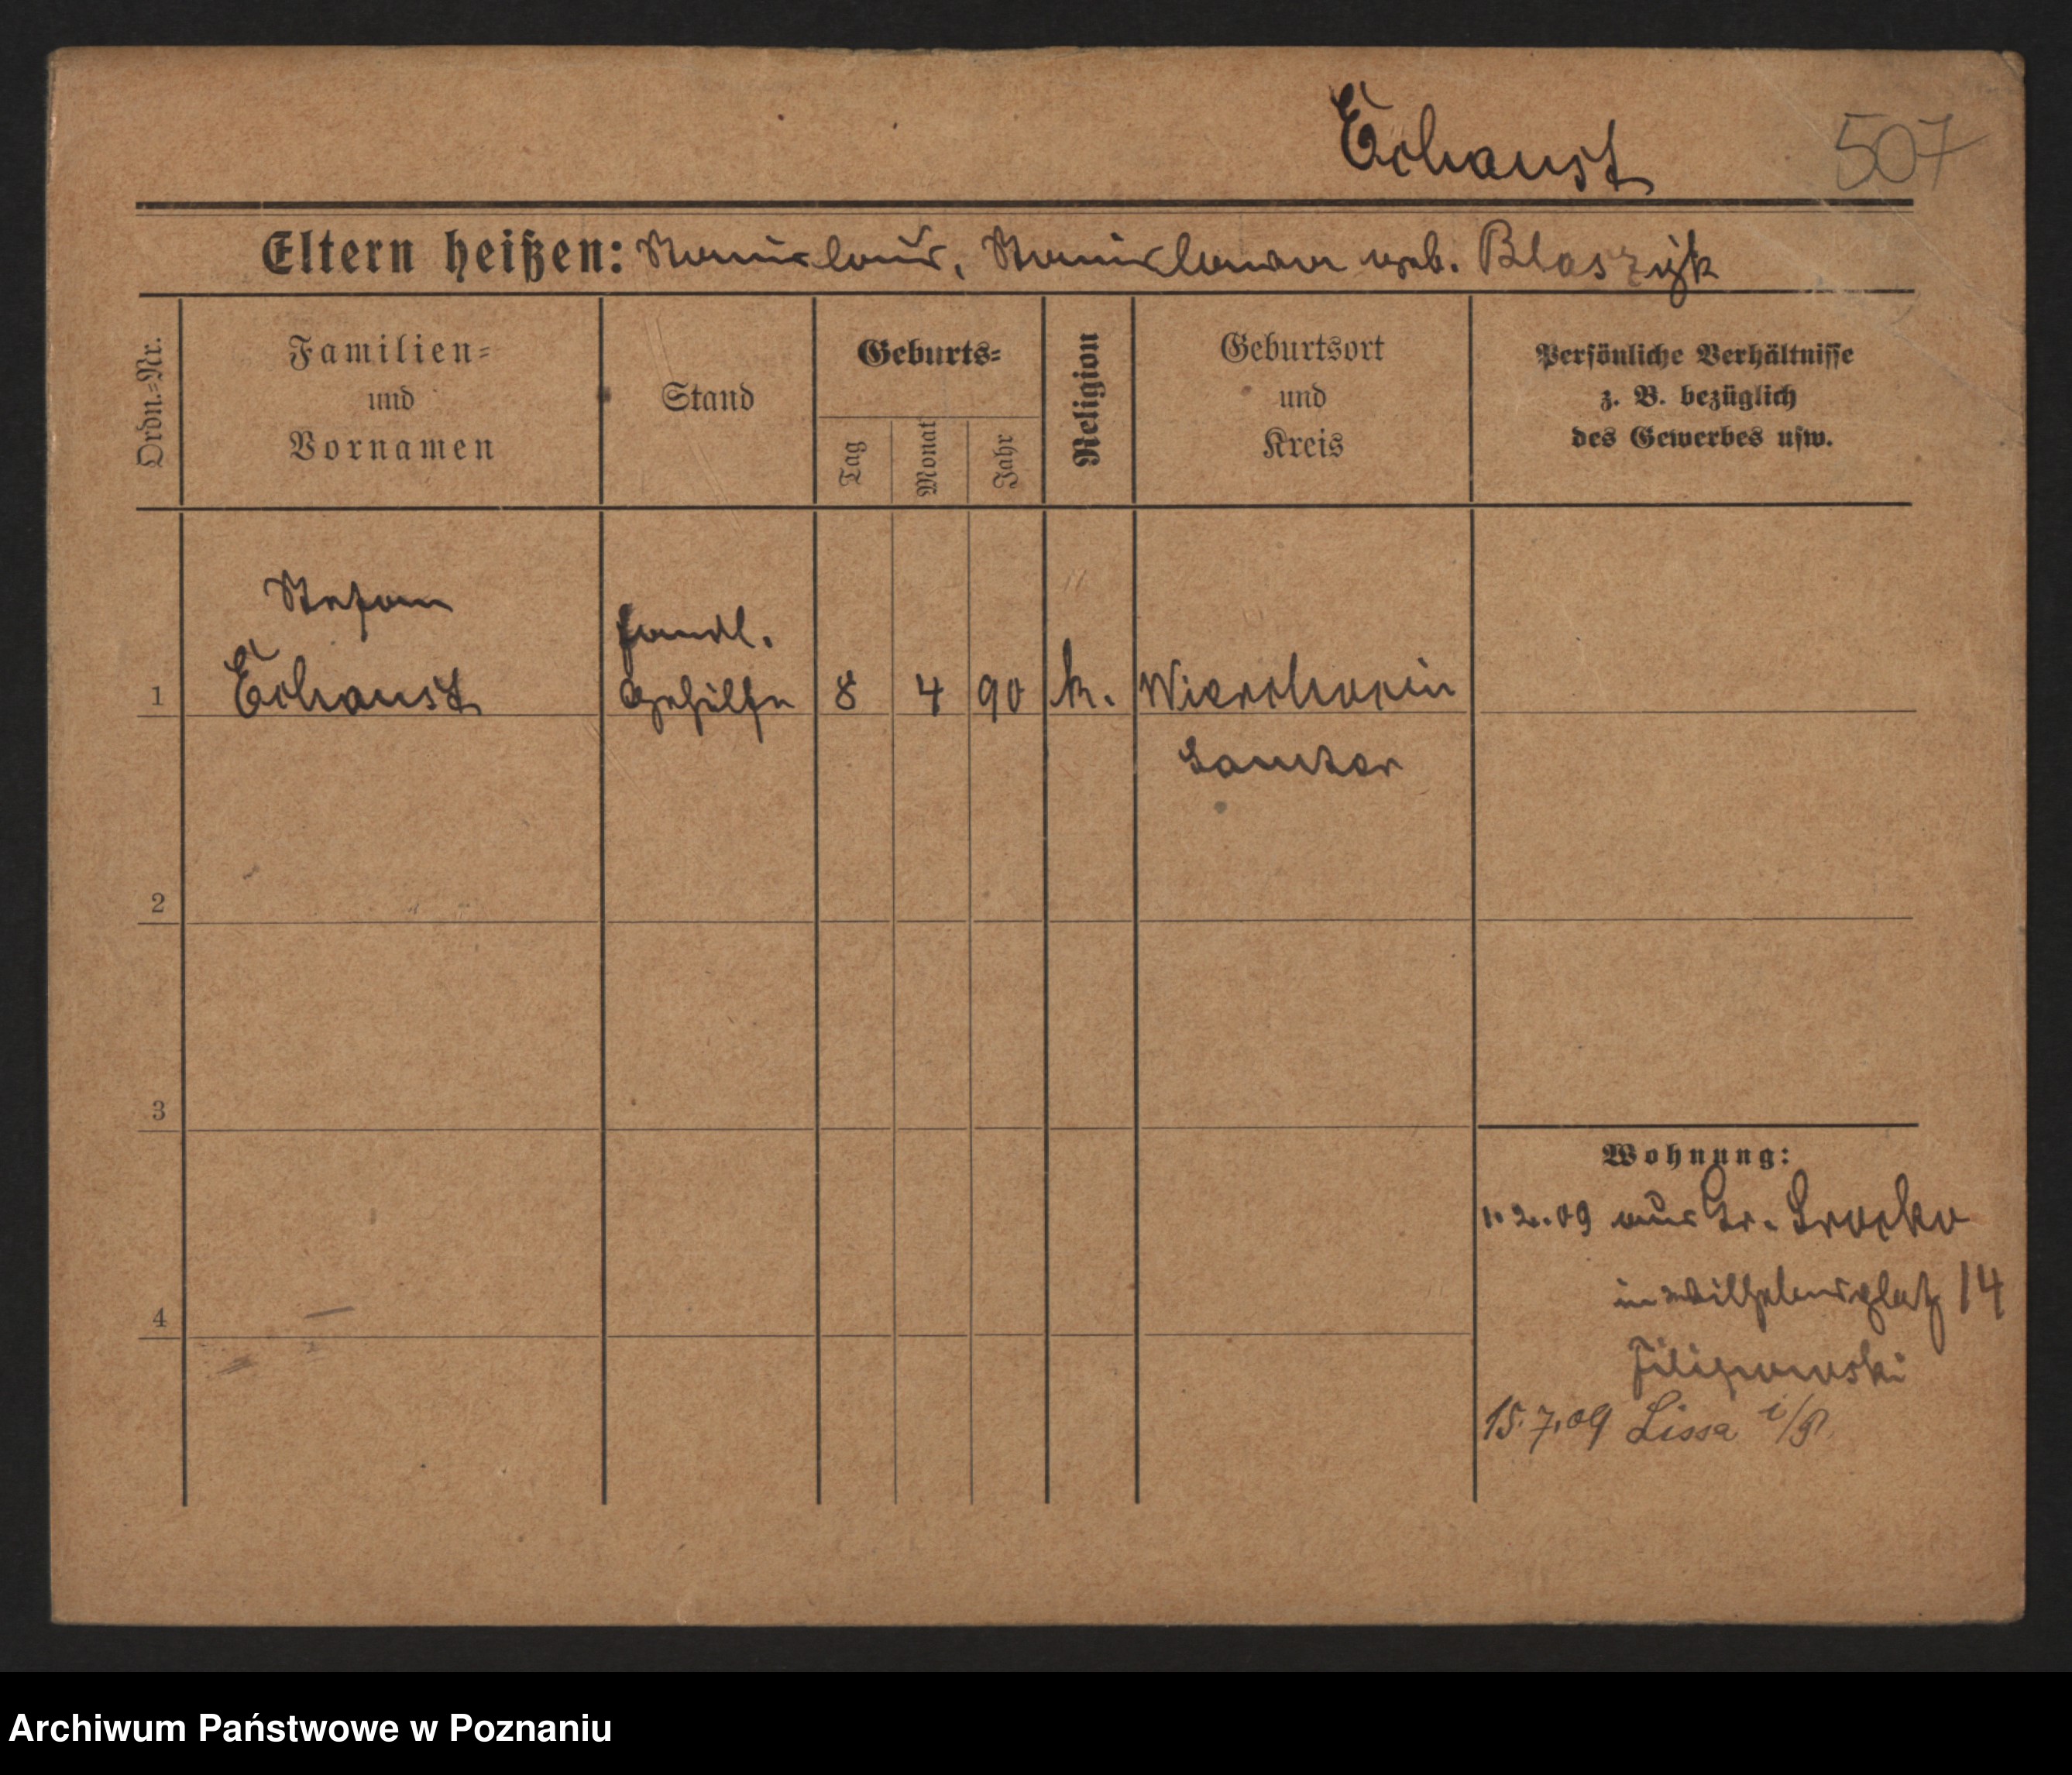 Echaust
507
Eltern heißen: Stanislaus, Stanislawa geb. Blaszyk
Ordn.-Nr.
Familien-
und
Vornamen
Stand
Geburts-
Tag
Monat
Jahr
Religion
Geburtsort
und
Kreis
Persönliche Verhältnisse
z. B. bezüglich
des Gewerbes usw.
Stefan
Handl.
1 Echaust Gehilfe 8 4 90 k. Wierchocin
Samter
2
3
4
Wohnung:
1.2.09 aus Gr. Srocko
in Wilhelmsplatz 14
Filipowski
15.7.09 Lissa i/P
Archiwum Państwowe w Poznaniu